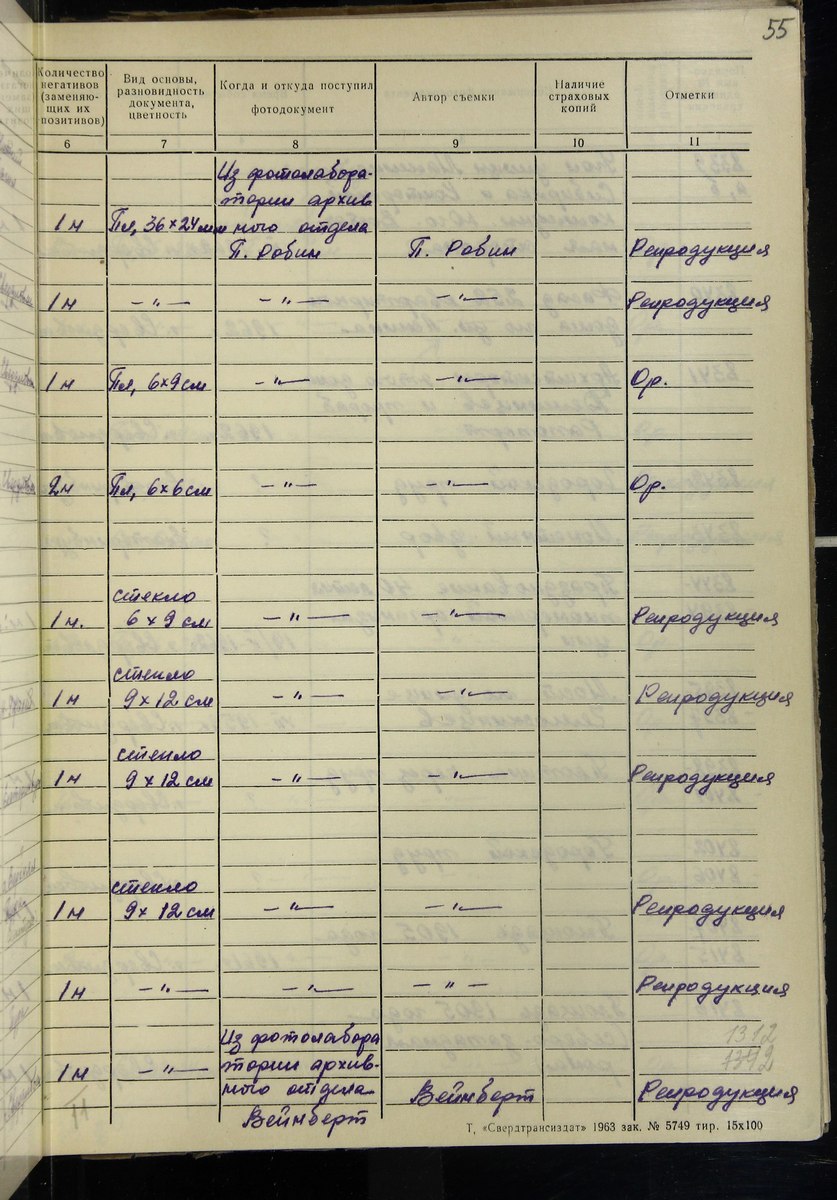 55
Количество негативов (заменяющих их позитивов) Вид основы, разновидность документа, цветность Когда и откуда поступил фотодокумент Автор съемки Наличие страховых копий Отметки
6 7 8 9 10 11
Из фотолабора-
тории архив-
1 н Пл, 36×24 мм ного отдела
П. Робин П. Робин Репродукция
1 н —"— —"— —"— Репродукция
1 н Пл, 6×9 см —"— —"— Ор.
2 н Пл, 6×6 см —"— —"— Ор.
стекло
1 н. 6×9 см —"— —"— Репродукция
стекло
1 н 9×12 см —"— —"— Репродукция
стекло
1 н 9×12 см —"— —"— Репродукция
стекло
1 н 9×12 см —"— —"— Репродукция
1 н —"— —"— —"— Репродукция
Из фотолабора
1312
1 н —"— тории архив-
ного отдела Вейнберт Репродукция
11 Вейнберт
Т. «Свердтрансиздат» 1963 зак. № 5749 тир. 15х100